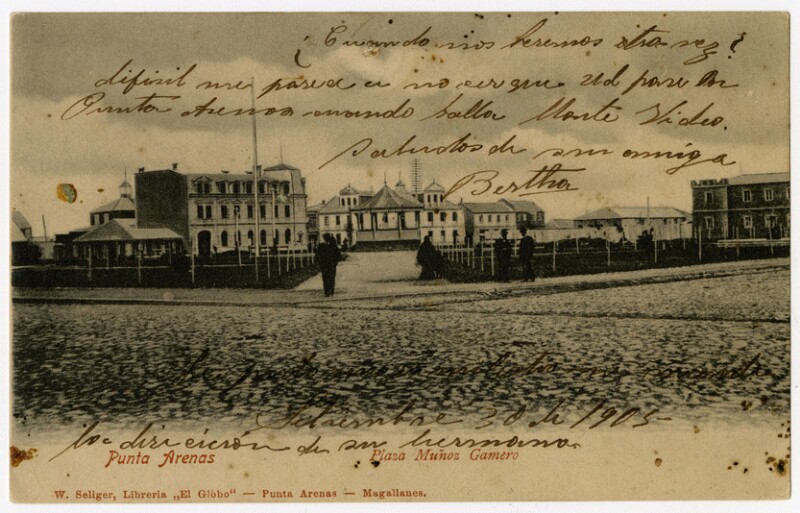 ¿Cuando nos beremos otra vez?
difisil me parece a no cer que Ud pase la
Punta Arenas cuando balla Monte Video.
Saludos de su amiga
Bertha
Setiembre 30 de 1905
la direición de su hermana.
Punta Arenas
Plaza Muñoz Gamero
W. Seliger, Libreria „El Globo“ — Punta Arenas — Magallanes.